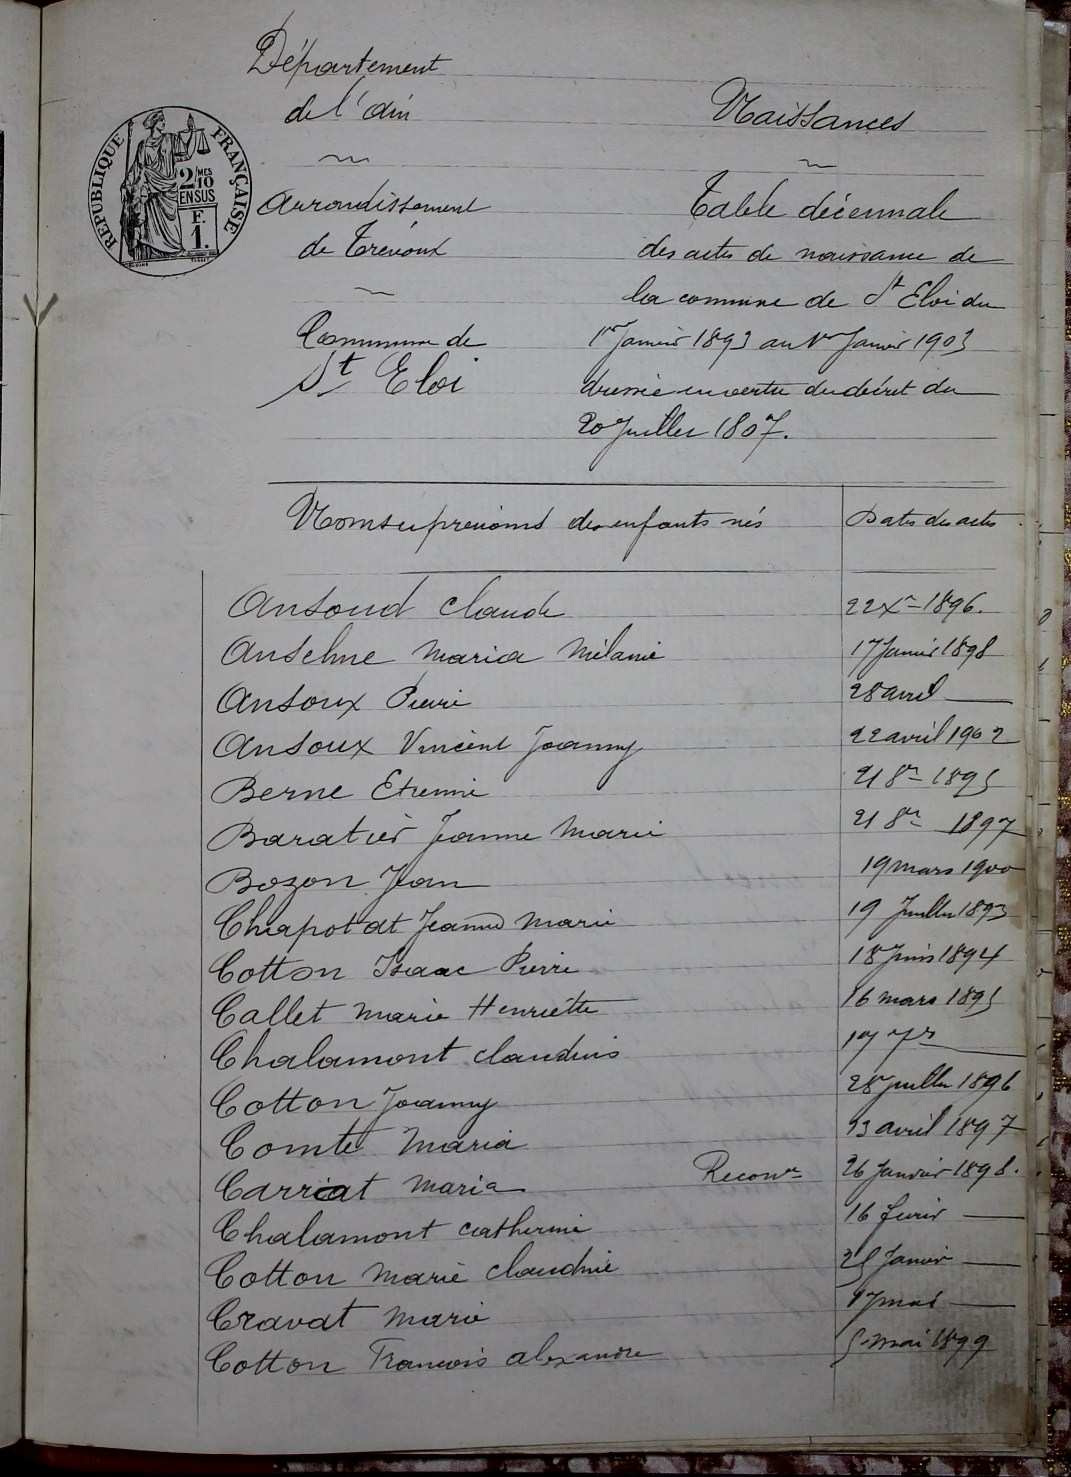 Département
de l'Ain
Arrondissement
de Trévoux
Commune de
St Eloi
RÉPUBLIQUE FRANÇAISE
2/10 MES
EN SUS
F.
1.
Naissances
Table décennale
des actes de naissance de
la commune de St Eloi du
1er Janvier 1893 au 1er Janvier 1903
dressée en vertu du décret du
20 Juillet 1807.
Noms et prénoms des enfants nés Dates des actes
Ansoud Claude 22 Xre 1896.
Anselme Maria Mélanie 17 Janvier 1898
Ansoux Pierre 28 avril —
Ansoux Vincent Joanny 22 avril 1902
Berne Etienne 21 8re 1895
Baratier Jeanne Marie 21 8re 1897
Bozon Jean 19 mars 1900
Chapotat Jeanne Marie 19 Juillet 1893
Cotton Isaac Pierre 18 Juin 1894
Callet Marie Henriette 16 mars 1895
Chalamont Claudius 17 7re —
Cotton Joanny 28 Juillet 1896
Comte Maria 13 avril 1897
Carriat Maria Reconce 26 Janvier 1898.
Chalamont Catherine 16 février —
Cotton Marie Claudine 25 Janvier —
Cravat Marie 17 mai —
Cotton François Alexandre 5 mai 1899